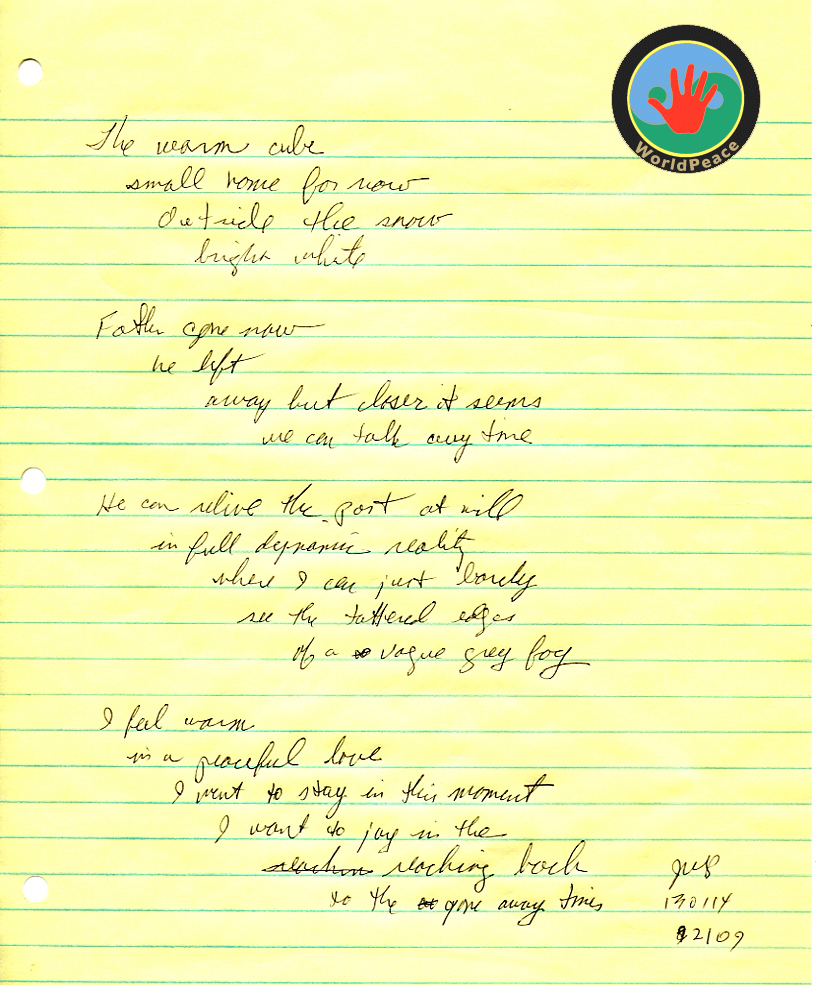 WorldPeace
The warm cube
small home for now
Outside the snow
bright white
Father gone now
he left
away but closer it seems
we can talk any time
He can relive the past at will
in full dynamic reality
where I can just barely
see the tattered edges
of a vague grey fog
I feel warm
in a peaceful love
I want to stay in this moment
I want to joy in the
reaching back
to the gone away times
130114
2109